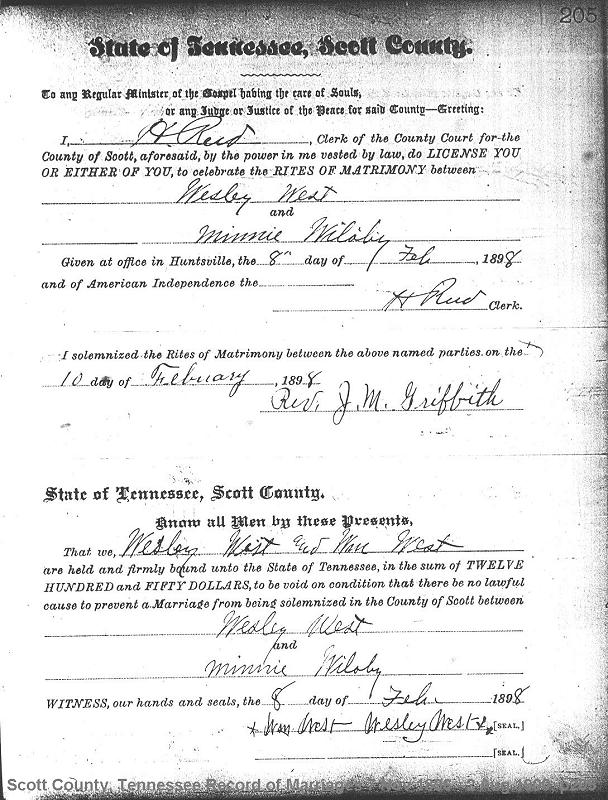 205
State of Tennessee, Scott County.
To any Regular Minister of the Gospel having the care of Souls,
or any Judge or Justice of the Peace for said County—Greeting:
I, H Reed, Clerk of the County Court for the
County of Scott, aforesaid, by the power in me vested by law, do LICENSE YOU
OR EITHER OF YOU, to celebrate the RITES OF MATRIMONY between
Wesley West
and
Minnie Wiloby
Given at office in Huntsville, the 8" day of Feb, 1898
and of American Independence the
H Reed Clerk.
I solemnized the Rites of Matrimony between the above named parties on the
10 day of February, 1898
Rev. J. M. Griffith
State of Tennessee, Scott County.
Know all Men by these Presents,
That we, Wesley West and Wm West
are held and firmly bound unto the State of Tennessee, in the sum of TWELVE
HUNDRED and FIFTY DOLLARS, to be void on condition that there be no lawful
cause to prevent a Marriage from being solemnized in the County of Scott between
Wesley West
and
Minnie Wiloby
WITNESS, our hands and seals, the 8 day of Feb. 1898
x Wm West Wesley West x [SEAL.]
[SEAL.]
Scott County, Tennessee Record of Marriage